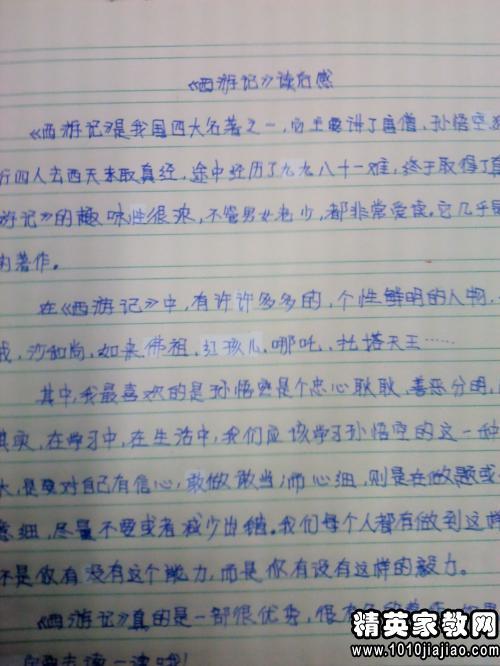 《西游记》读后感
《西游记》是我国四大名著之一,它主要讲了唐僧,孙悟空
行四人去西天来取真经,途中经历了九九八十一难,终于取得了
游记》的趣味性很浓,不管男女老少,都非常爱读。它几乎
的著作。
在《西游记》中,有许许多多的,个性鲜明的人物,
戒,沙和尚,如来佛祖,红孩儿,哪吒,托塔天王……
其中,我最喜欢的是孙悟空是个忠心耿耿、善恶分明,
其实,在学习中,在生活中,我们应该学习孙悟空的这一种
大,是要对自己有信心,敢做敢当;而心细,则是在做题或
意细,尽量不要或者减少出错。我们每个人都有做到这样
不是你有没有这个能力,而是你有没有这样的毅力。
《西游记》真的是一部很优秀,很
读一读哦!
精英家教网
www.1010jiajiao.com